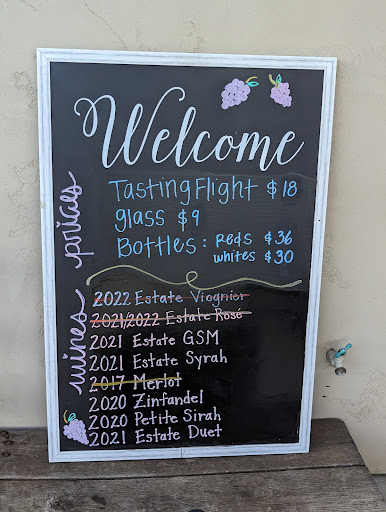 Welcome
Tasting Flight $18
glass $9
Bottles: Reds $36
whites $30
prices
wines
2022 Estate Viognier
2021/2022 Estate Rosé
2021 Estate GSM
2021 Estate Syrah
2017 Merlot
2020 Zinfandel
2020 Petite Sirah
2021 Estate Duet